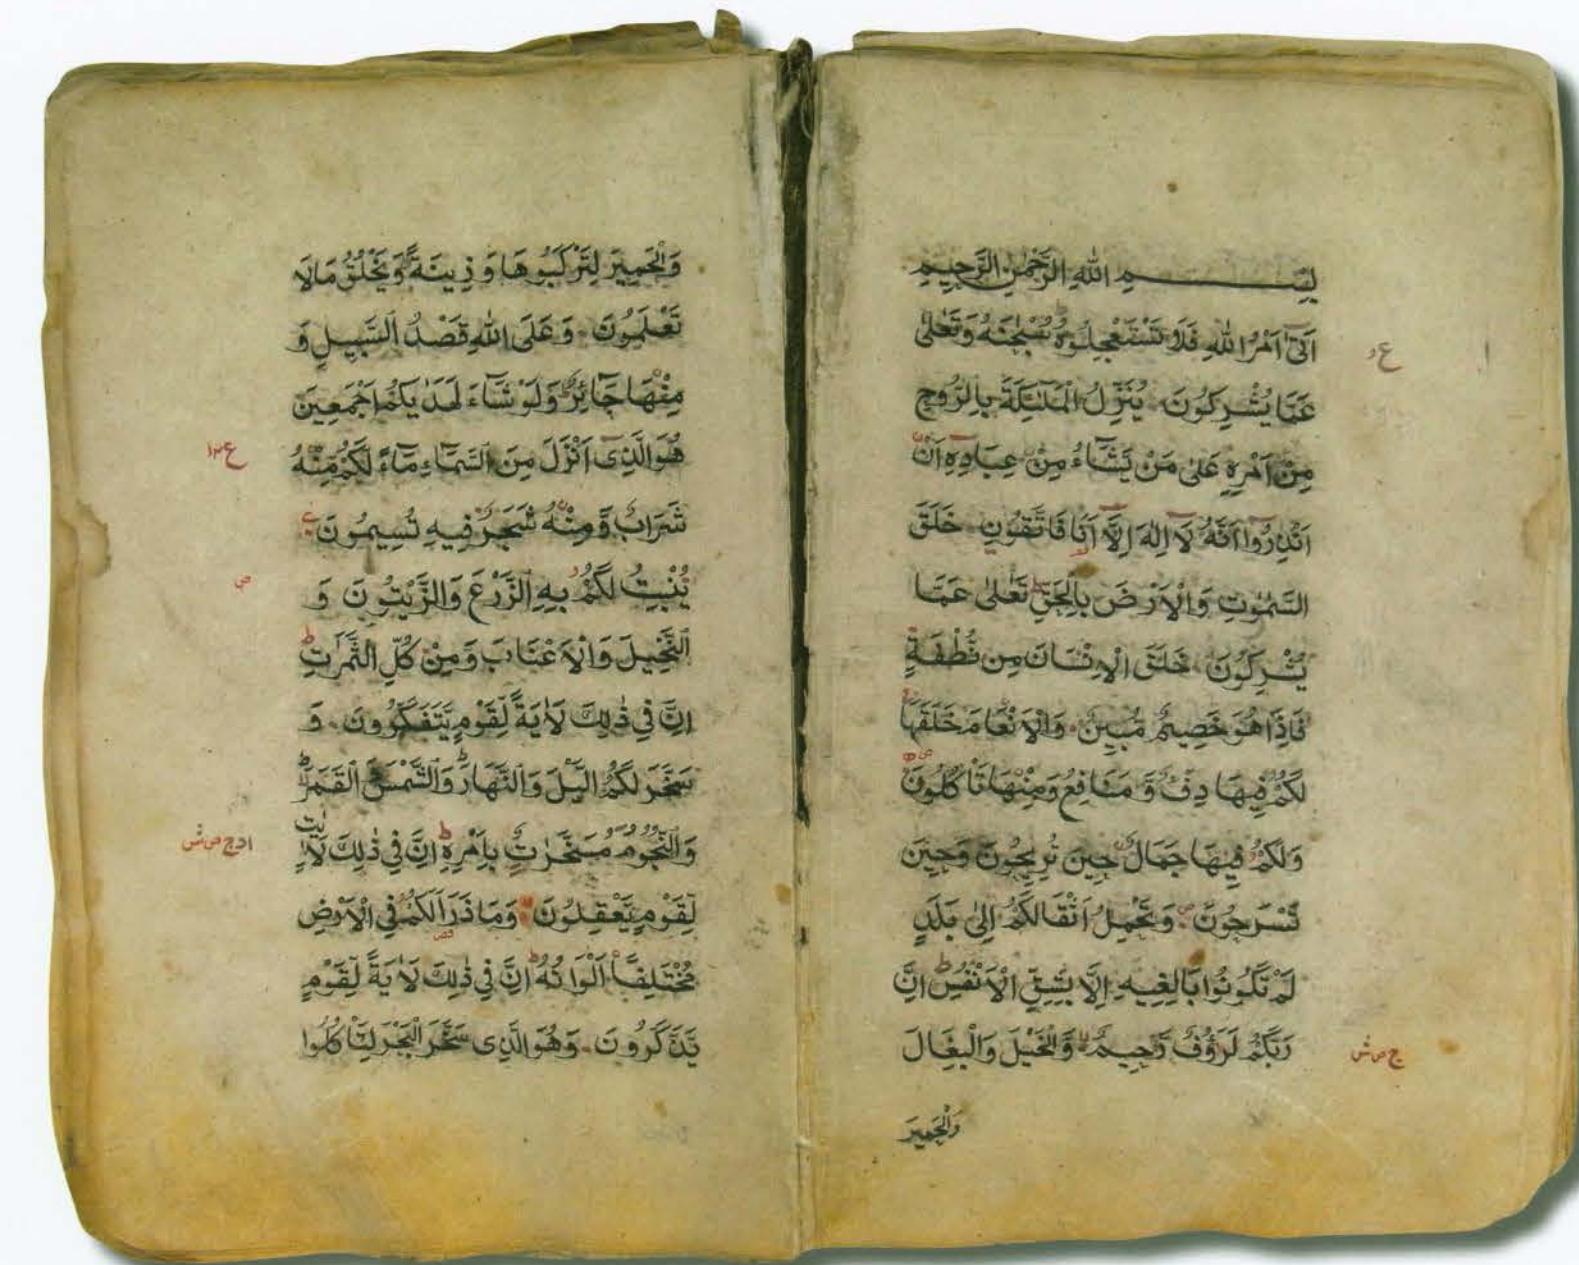 بِسْمِ اللهِ الرَّحْمٰنِ الرَّحِيْمِ
اَتٰۤى اَمْرُ اللهِ فَلَا تَسْتَعْجِلُوْهُ ؕ سُبْحٰنَهٗ وَتَعٰلٰى
عَمَّا يُشْرِكُوْنَ يُنَزِّلُ الْمَلٰٓئِكَةَ بِالرُّوْحِ
مِنْ اَمْرِهٖ عَلٰى مَنْ يَّشَآءُ مِنْ عِبَادِهٖۤ اَنْ
اَنْذِرُوْۤا اَنَّهٗ لَاۤ اِلٰهَ اِلَّاۤ اَنَا فَاتَّقُوْنِ خَلَقَ
السَّمٰوٰتِ وَالْاَرْضَ بِالْحَقِّ ؕ تَعٰلٰى عَمَّا
يُشْرِكُوْنَ خَلَقَ الْاِنْسَانَ مِنْ نُّطْفَةٍ
فَاِذَا هُوَ خَصِيْمٌ مُّبِيْنٌ وَالْاَنْعَامَ خَلَقَهَا
لَكُمْ فِيْهَا دِفْءٌ وَّمَنَافِعُ وَمِنْهَا تَاْكُلُوْنَ
وَلَكُمْ فِيْهَا جَمَالٌ حِيْنَ تُرِيْحُوْنَ وَحِيْنَ
تَسْرَحُوْنَ وَتَحْمِلُ اَثْقَالَكُمْ اِلٰى بَلَدٍ
لَّمْ تَكُوْنُوْا بَالِغِيْهِ اِلَّا بِشِقِّ الْاَنْفُسِ ؕ اِنَّ
رَبَّكُمْ لَرَءُوْفٌ رَّحِيْمٌ وَّالْخَيْلَ وَالْبِغَالَ
وَالْحَمِيْرَ
وَالْحَمِيْرَ لِتَرْكَبُوْهَا وَزِيْنَةً ؕ وَيَخْلُقُ مَا لَا
تَعْلَمُوْنَ وَعَلَى اللهِ قَصْدُ السَّبِيْلِ وَ
مِنْهَا جَآئِرٌ ؕ وَلَوْ شَآءَ لَهَدٰىكُمْ اَجْمَعِيْنَ
هُوَ الَّذِيْۤ اَنْزَلَ مِنَ السَّمَآءِ مَآءً لَّكُمْ مِّنْهُ
شَرَابٌ وَّمِنْهُ شَجَرٌ فِيْهِ تُسِيْمُوْنَ
يُنْۢبِتُ لَكُمْ بِهِ الزَّرْعَ وَالزَّيْتُوْنَ وَ
النَّخِيْلَ وَالْاَعْنَابَ وَمِنْ كُلِّ الثَّمَرٰتِ ؕ
اِنَّ فِيْ ذٰلِكَ لَاٰيَةً لِّقَوْمٍ يَّتَفَكَّرُوْنَ وَ
سَخَّرَ لَكُمُ الَّيْلَ وَالنَّهَارَ وَالشَّمْسَ الْقَمَرَ ؕ
وَالنُّجُوْمُ مُسَخَّرٰتٌ بِاَمْرِهٖ ؕ اِنَّ فِيْ ذٰلِكَ لَاٰيٰتٍ
لِّقَوْمٍ يَّعْقِلُوْنَ وَمَا ذَرَاَ لَكُمْ فِي الْاَرْضِ
مُخْتَلِفًا اَلْوَانُهٗ ؕ اِنَّ فِيْ ذٰلِكَ لَاٰيَةً لِّقَوْمٍ
يَّذَّكَّرُوْنَ وَهُوَ الَّذِيْ سَخَّرَ الْبَحْرَ لِتَاْكُلُوْا